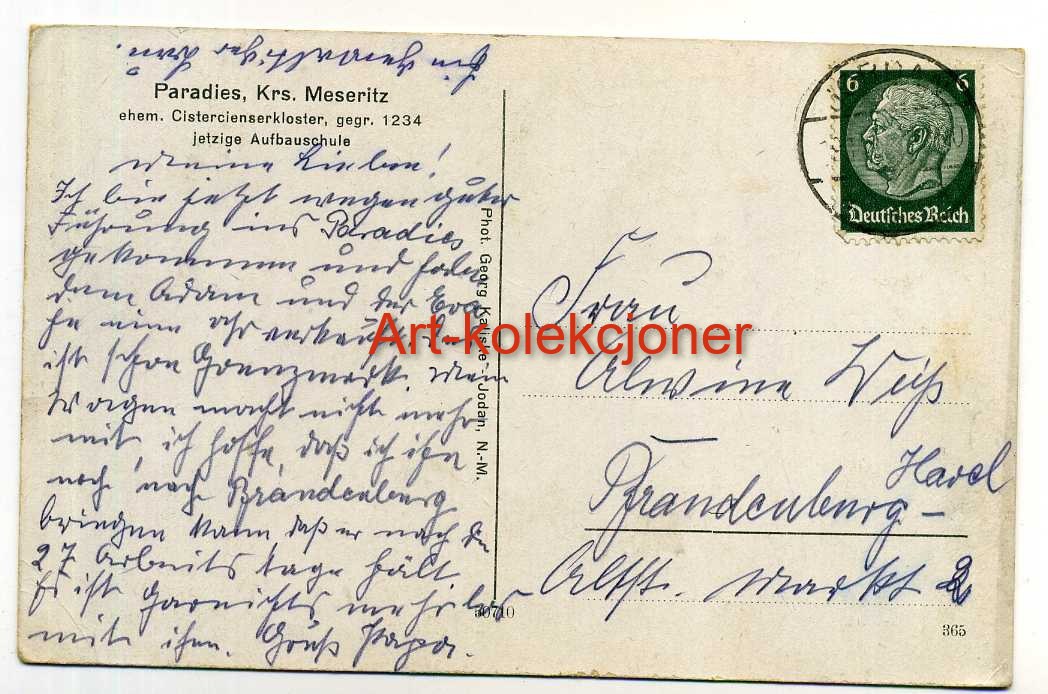 Paradies, Krs. Meseritz
ehem. Cistercienserkloster, gegr. 1234
jetzige Aufbauschule
Meine Lieben!
Ich bin jetzt wegen guter
Führung ins Paradies
gekommen und habe
dem Adam und der Eva
eine verkauft.
ist schon Grenzmark. Mein
Wagen macht nicht mehr
mit, ich hoffe, daß ich ihn
noch nach Brandenburg
bringen kann daß er noch die
27 Arbeitstage hält.
Es ist garnichts mehr los
mit ihm. Gruß Papa.
Phot. Georg Kaliske - Jodan, N.-M.
30710
6 6
Deutsches Reich
Frau
Alwine Weiß
Brandenburg-
Havel
Altst. Markt 2
365
Art-kolekcjoner